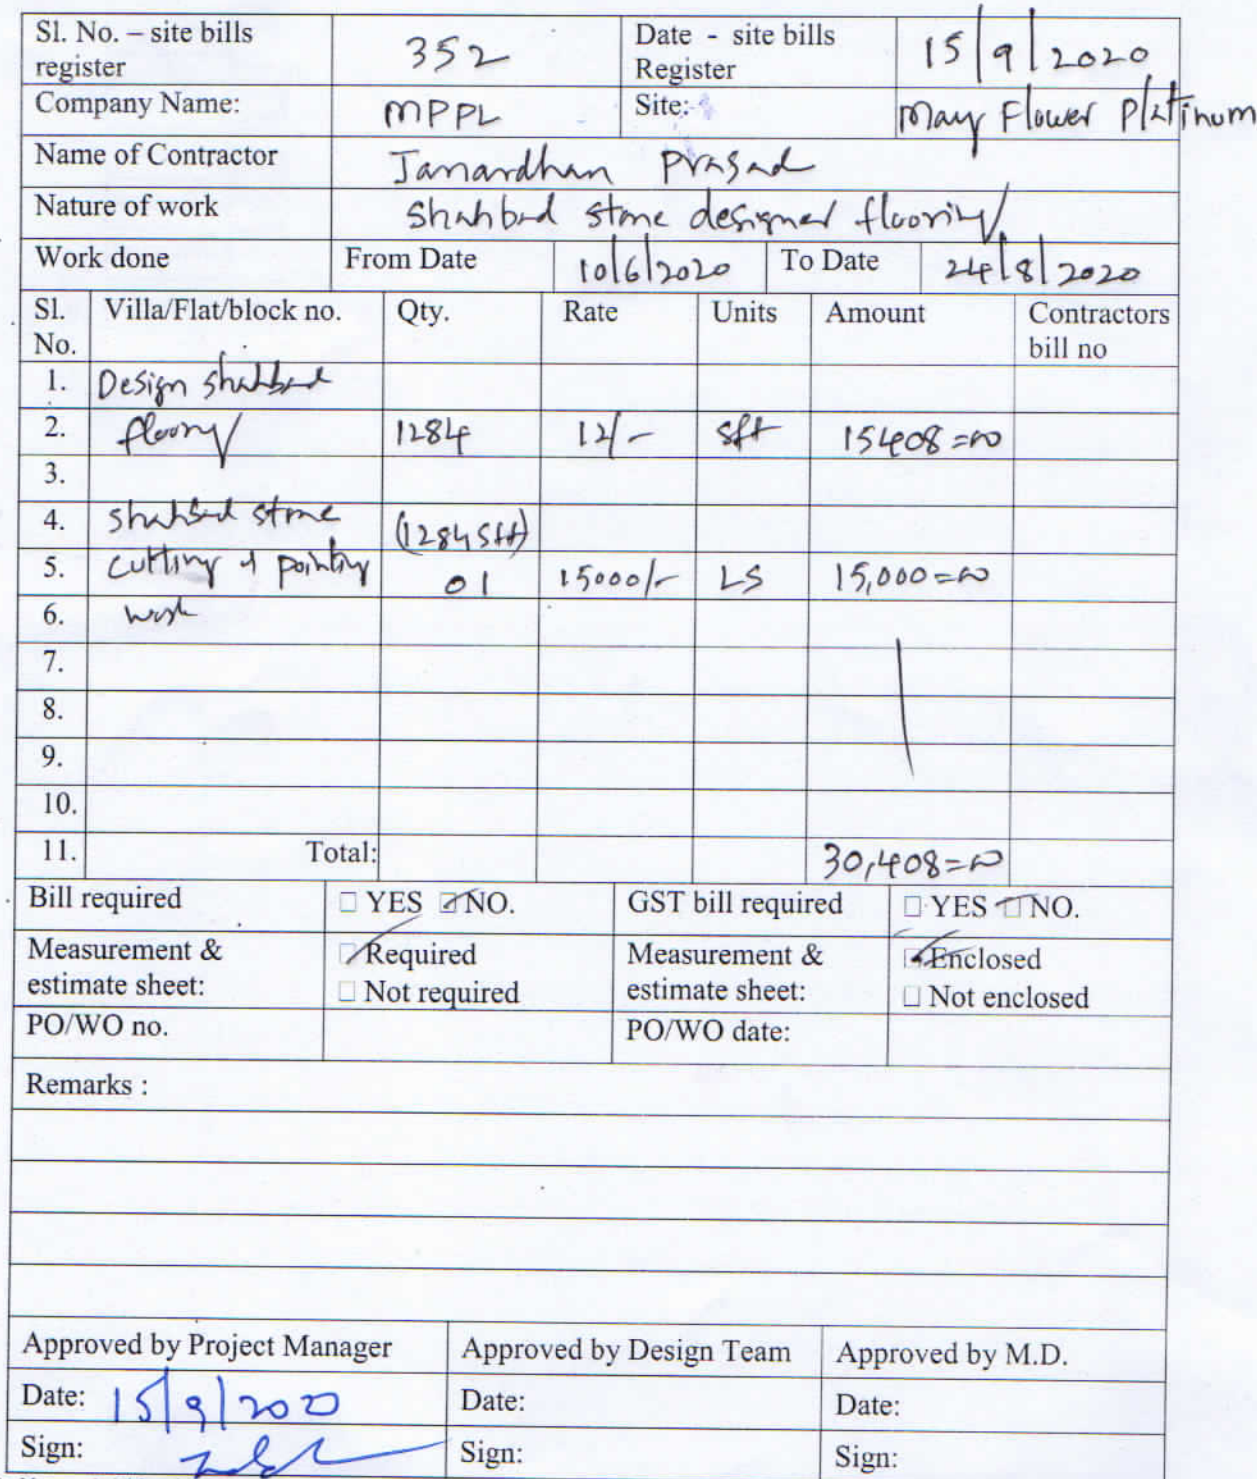 Sl. No. – site bills register 352 Date - site bills Register 15/9/2020
Company Name: MPPL Site: May Flower Platinum
Name of Contractor Janardhan Prasad
Nature of work Shahbad stone designer flooring
Work done From Date 10/6/2020 To Date 24/8/2020
Sl. No. Villa/Flat/block no. Qty. Rate Units Amount Contractors bill no
1. Design shahbad
2. flooring 1284 12/- sft 15408=00
3.
4. shahbad stone (1284 sft)
5. cutting & pointing 01 15000/- LS 15,000=00
6. work
7.
8.
9.
10.
11. Total: 30,408=00
Bill required ☐ YES ☑ NO. GST bill required ☐ YES ☑ NO.
Measurement & estimate sheet: ☑ Required ☐ Not required Measurement & estimate sheet: ☑ Enclosed ☐ Not enclosed
PO/WO no. PO/WO date:
Remarks :
Approved by Project Manager Approved by Design Team Approved by M.D.
Date: 15/9/2020 Date: Date:
Sign: Sign: Sign: